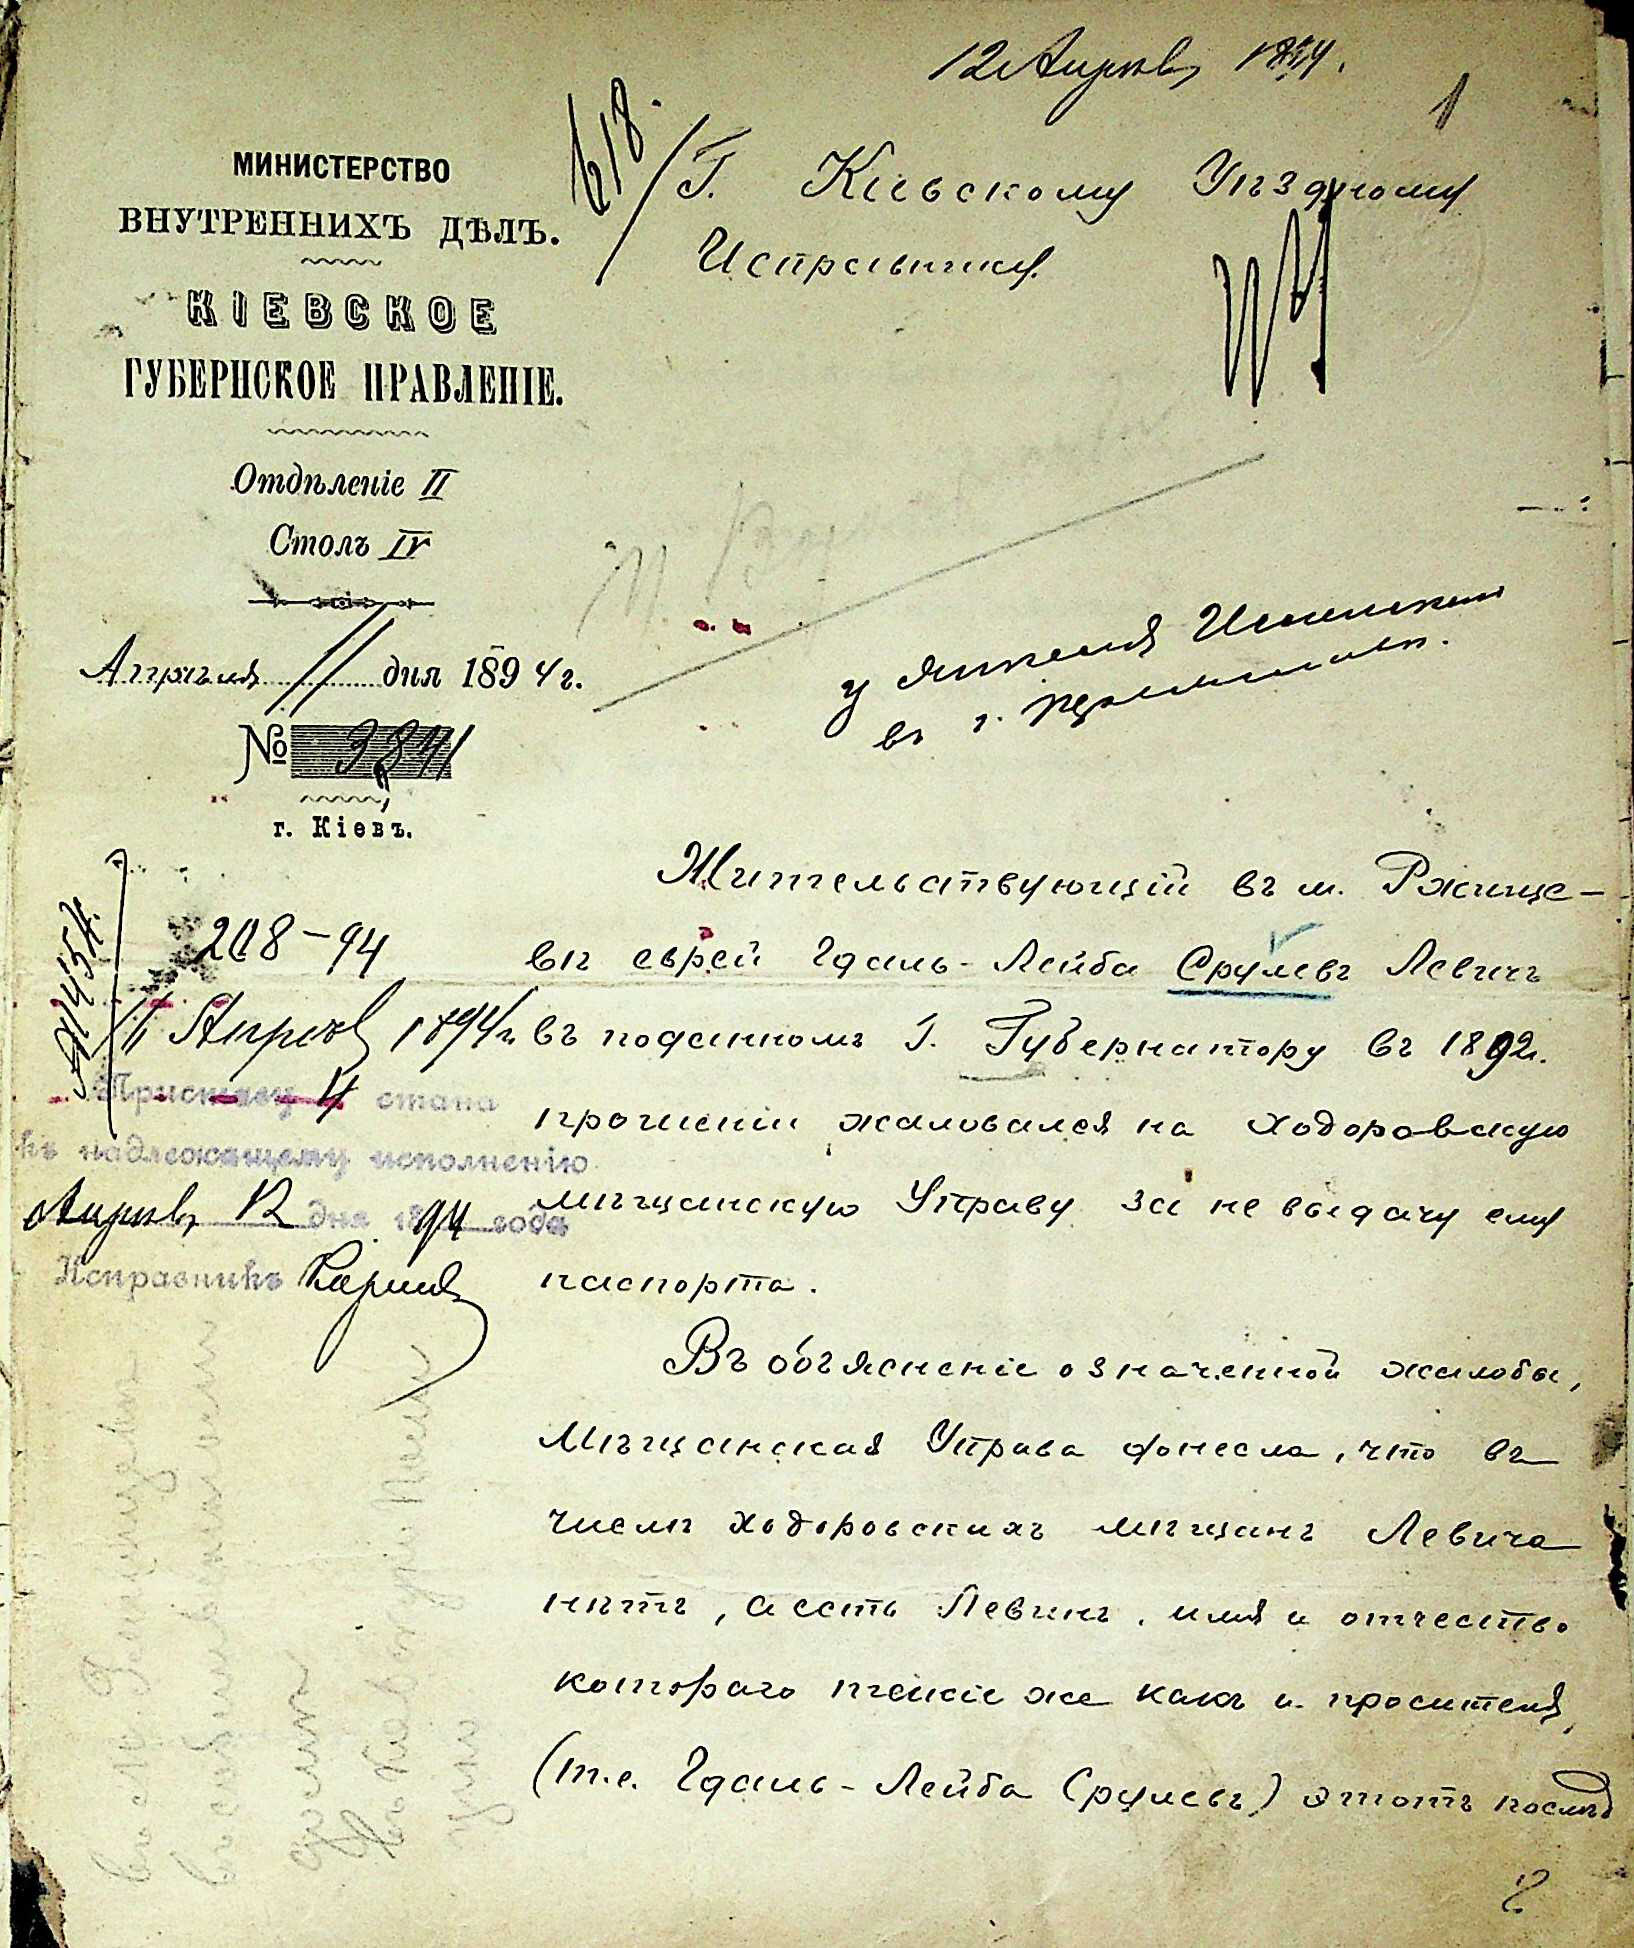 12 Апрѣля 1894.
1
618.
МИНИСТЕРСТВО
ВНУТРЕННИХЪ ДѢЛЪ.
КІЕВСКОЕ
ГУБЕРНСКОЕ ПРАВЛЕНІЕ.
Отдѣленіе II
Столъ IV
Апрѣля 11 дня 1894 г.
№ 3841
г. Кіевъ.
Г. Кіевскому Уѣздному
Исправнику.
у
въ г.
208-94
11 Апрѣля 1894 г.
Приставу 4 стана
къ надлежащему исполненію
Апрѣля 12 дня 1894 года
Исправникъ
Жительствующій въ м. Ржище-
вѣ еврей Гдаль-Лейба Срулевъ Левичъ
въ поданномъ Г. Губернатору въ 1892 г.
прошеніи жаловался на Ходоровскую
мѣщанскую Управу за не выдачу ему
паспорта.
Въ объясненіе означенной жалобы,
Мѣщанская Управа донесла, что въ
числѣ ходоровскихъ мѣщанъ Левича
нѣтъ, а есть Левинъ, имя и отчество
котораго такіе же какъ и просителя,
(т.е. Гдаль-Лейба Срулевъ) этотъ послѣд